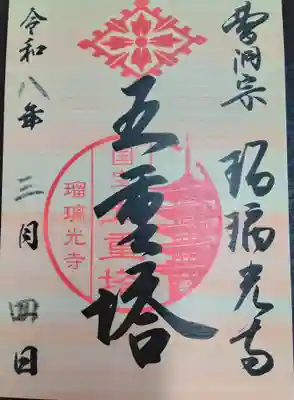 曹洞宗 瑠璃光寺
五重塔
国宝五重塔
瑠璃光寺
令和八年 三月 四日